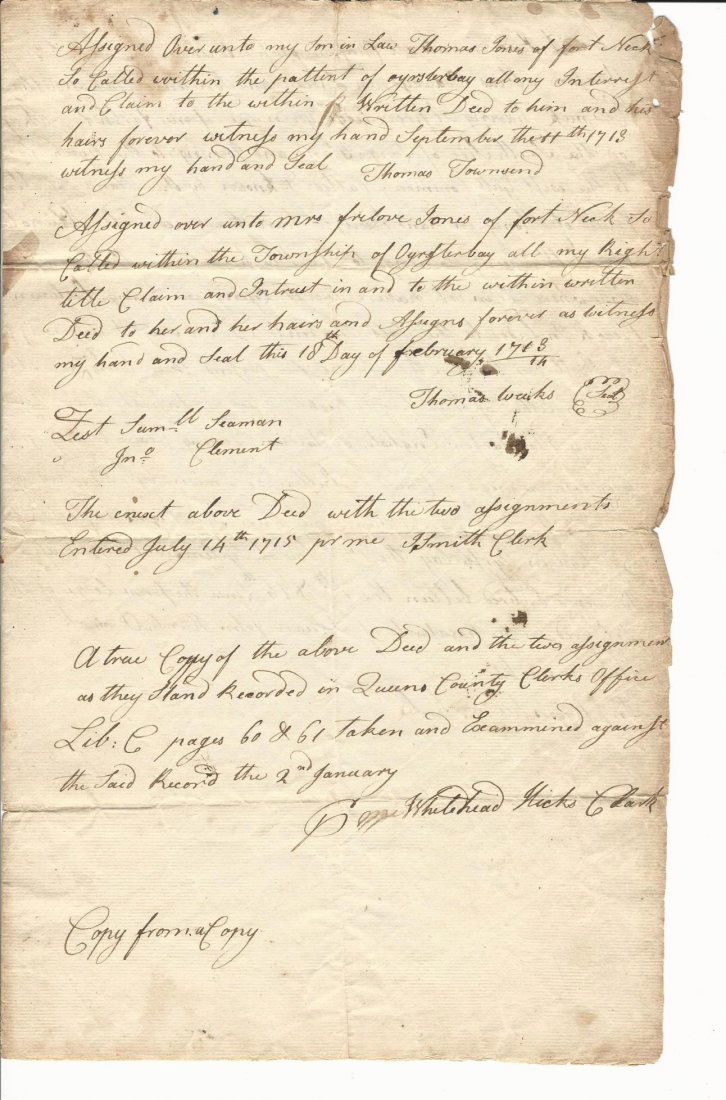 Assigned Over unto my Son in Law Thomas Jones of fort Neck
So Called within the pattent of oyosterbay all my Interest
and Claim to the within Written Deed to him and his
hairs forever witness my hand September the 11th 1713
witness my hand and Seal Thomas Townsend
Assigned over unto mrs frelove Jones of fort Neck So
Called within the Township of Oyrsterbay all my Right
title Claim and Intrust in and to the within written
Deed to her and her hairs and Assigns forever as witness
my hand and Seal this 18th Day of frebruary 1713/14
Thomas weeks Seal
Test Samll Seaman
Jno Clement
The above Deed with the two assignments
Entered July 14th 1715 pr me Smith Clerk
A true Copy of the above Deed and the two assignmen
as they Stand Recorded in Queens County Clerks Office
Lib: C pages 60 & 61 taken and Exammined against
the Said Record the 2nd January
P me Whitehead Hicks Clark
Copy from a Copy